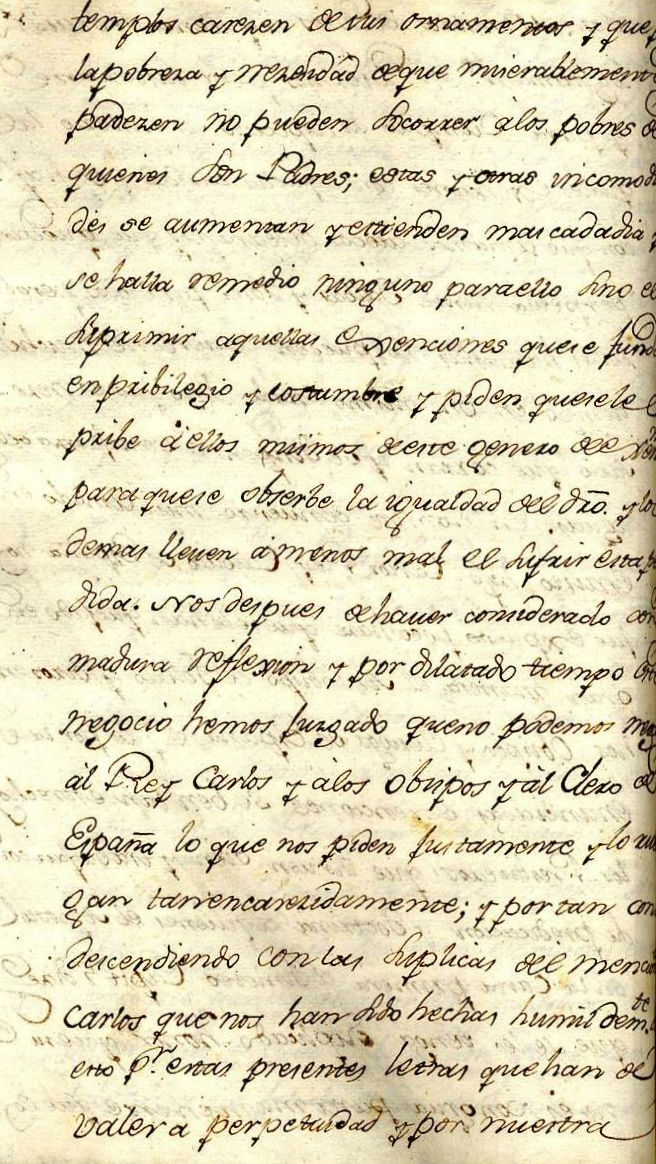 templos carezen de sus ornamentos y que
la pobreza y nezesidad de que miserablement
padezen no pueden socorrer à los pobres de
quienes son Padres; estas y otras incomodi
des se aumentan y estienden mas cada dia
se halla remedio ninguno para ello sino el
suprimir aquellas exenciones que se fund
en pribilegio y costumbre y piden que se le
pribe à ellos mismos de este genero de
para que se obserbe la igualdad del dr̃o. y los
demas lleven à menos mal el sufrir esta per
dida. Nos despues de haver considerado con
madura reflexion y por dilatado tiempo
negocio hemos juzgado que no podemos neg
àl Rey Carlos y à los Obispos y àl Clero de
España lo que nos piden justamente y lo rue
gan tan encarezidamente; y por tan con
descendiendo con las suplicas del mencio
Carlos que nos han sido hechas humildem.te
esto p.r estas presentes letras que han de
valer a perpetuidad y por nuestra